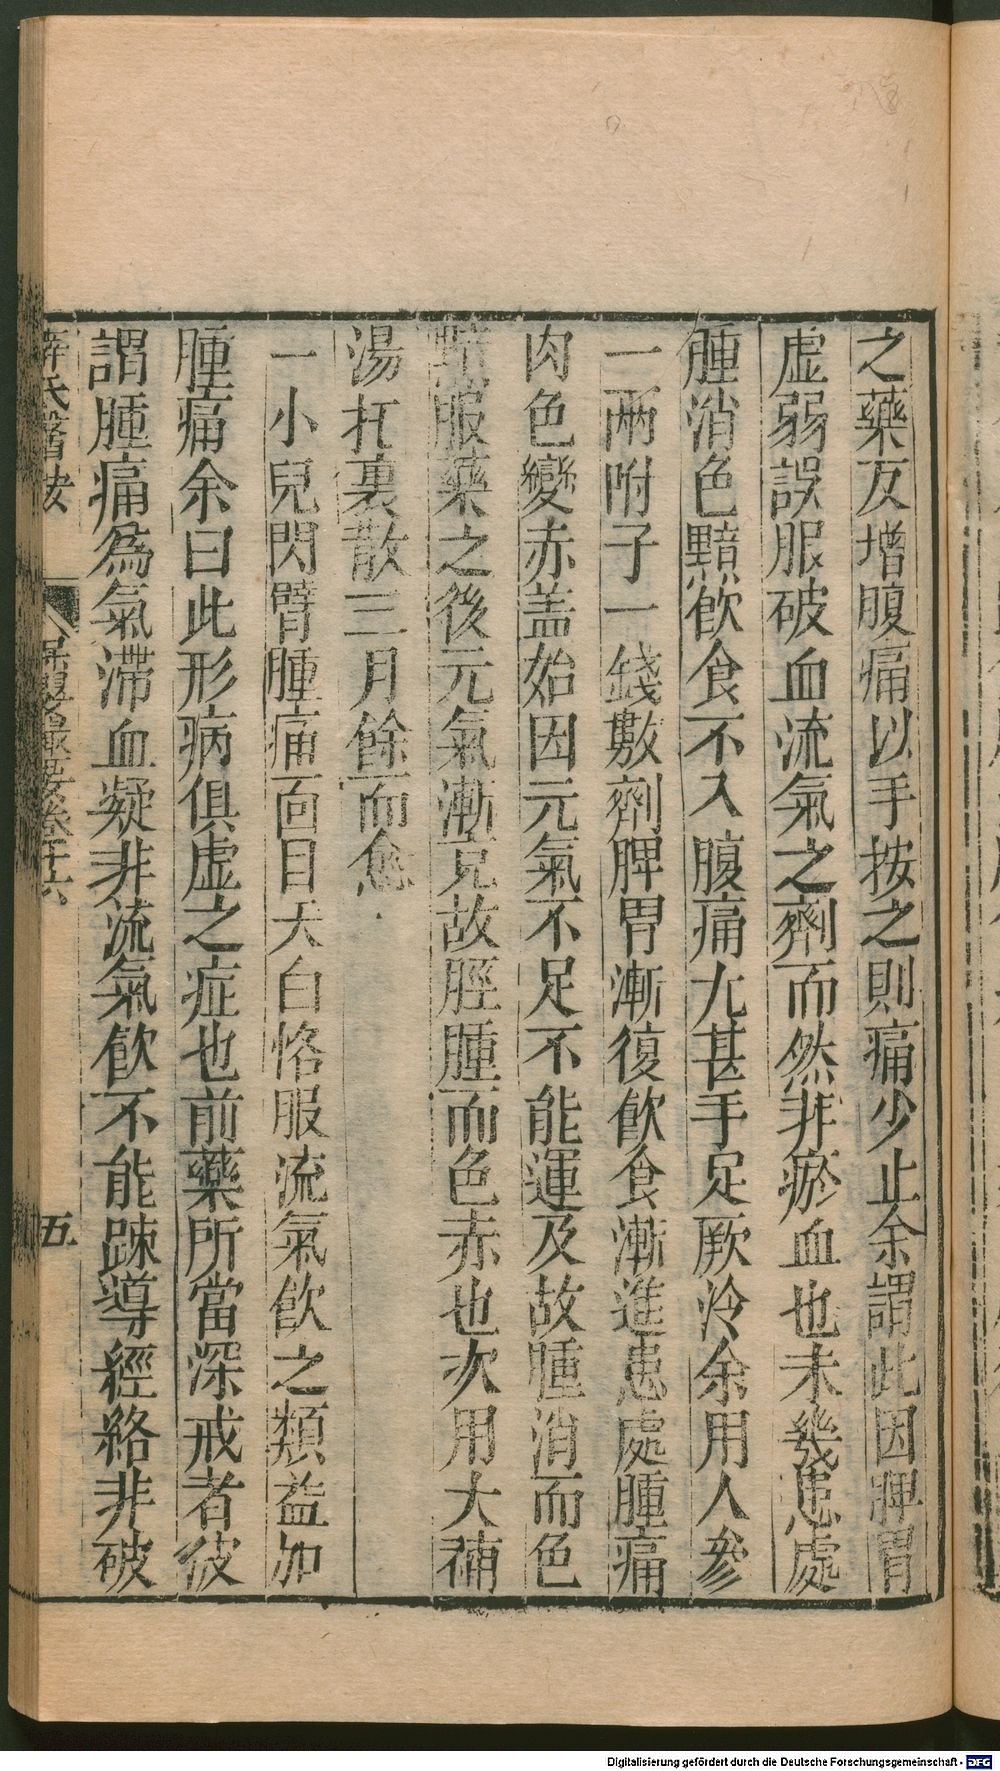 之藥反增腹痛以手按之則痛少止余謂此因脾胃
虛弱誤服破血流氣之劑而然非瘀血也未幾患處
腫消色黯飲食不入腹痛尢甚手足厥冷余用人參
一兩附子一錢數劑脾胃漸復飲食漸進患處腫痛
肉色變赤盖始因元氣不足不能運及故腫消而色
黯服藥之後元氣漸克故脛腫而色赤也次用大補
湯托裏散三月餘而愈
一小兒閃臂腫痛面目夭白恪服流氣飲之類益加
腫痛余曰此形病俱虛之症也前藥所當深戒者彼
謂腫痛爲氣滯血凝非流氣飲不能踈導經絡非破
薛氏醫按
保嬰撮要卷十六
五
Digitalisierung gefördert durch die Deutsche Forschungsgemeinschaft - DFG